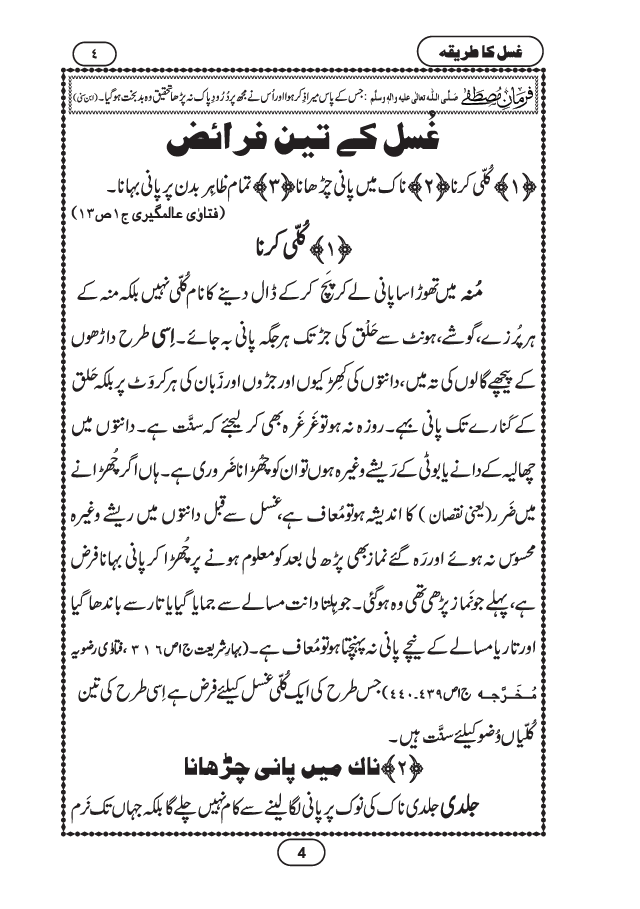 غسل کا طریقہ
٤
فرمانِ مُصطَفٰے صلَّی اللہ تعالٰی علیہ والہٖ وسلَّم : جس کے پاس میرا ذکر ہوا اور اُس نے مجھ پر دُرُودِ پاک نہ پڑھا تحقیق وہ بد بخت ہوگیا۔ (ابن سنی)
غُسل کے تین فرائض
﴿۱﴾ کُلّی کرنا ﴿۲﴾ ناک میں پانی چڑھانا ﴿۳﴾ تمام ظاہِر بدن پر پانی بہانا۔
(فتاوٰی عالمگیری ج۱ ص۱۳)
﴿۱﴾ کُلّی کرنا
مُنہ میں تھوڑا سا پانی لے کر پَچ کر کے ڈال دینے کا نام کُلّی نہیں بلکہ منہ کے
ہر پُرزے، گوشے، ہونٹ سے حَلْق کی جڑ تک ہر جگہ پانی بہ جائے۔ اِسی طرح داڑھوں
کے پیچھے گالوں کی تہ میں، دانتوں کی کِھڑکیوں اور جڑوں اور زَبان کی ہر کروٹ پر بلکہ حَلق
کے کَنارے تک پانی بہے۔ روزہ نہ ہو تو غَرغَرہ بھی کر لیجئے کہ سنَّت ہے۔ دانتوں میں
چھالیہ کے دانے یا بوٹی کے رَیشے وغیرہ ہوں تو ان کو چُھڑانا ضَروری ہے۔ ہاں اگر چُھڑانے
میں ضَرر (یعنی نقصان) کا اندیشہ ہو تو مُعاف ہے، غسل سے قبل دانتوں میں ریشے وغیرہ
محسوس نہ ہوئے اور رَہ گئے نماز بھی پڑھ لی بعد کو معلوم ہونے پر چُھڑا کر پانی بہانا فرض
ہے، پہلے جو نَماز پڑھی تھی وہ ہوگئی۔ جو ہلتا دانت مسالے سے جمایا گیا یا تار سے باندھا گیا
اور تار یا مسالے کے نیچے پانی نہ پہنچتا ہو تو مُعاف ہے۔ (بہارِ شریعت ج۱ص۳۱۶، فتاوٰی رضویہ
مُخَرَّجہ ج۱ص۴۳۹۔۴۴۰) جس طرح کی ایک کُلّی غسل کیلئے فرض ہے اِسی طرح کی تین
کُلّیاں وُضو کیلئے سنَّت ہیں۔
﴿۲﴾ ناک میں پانی چڑھانا
جلدی جلدی ناک کی نوک پر پانی لگا لینے سے کام نہیں چلے گا بلکہ جہاں تک نَرم
4